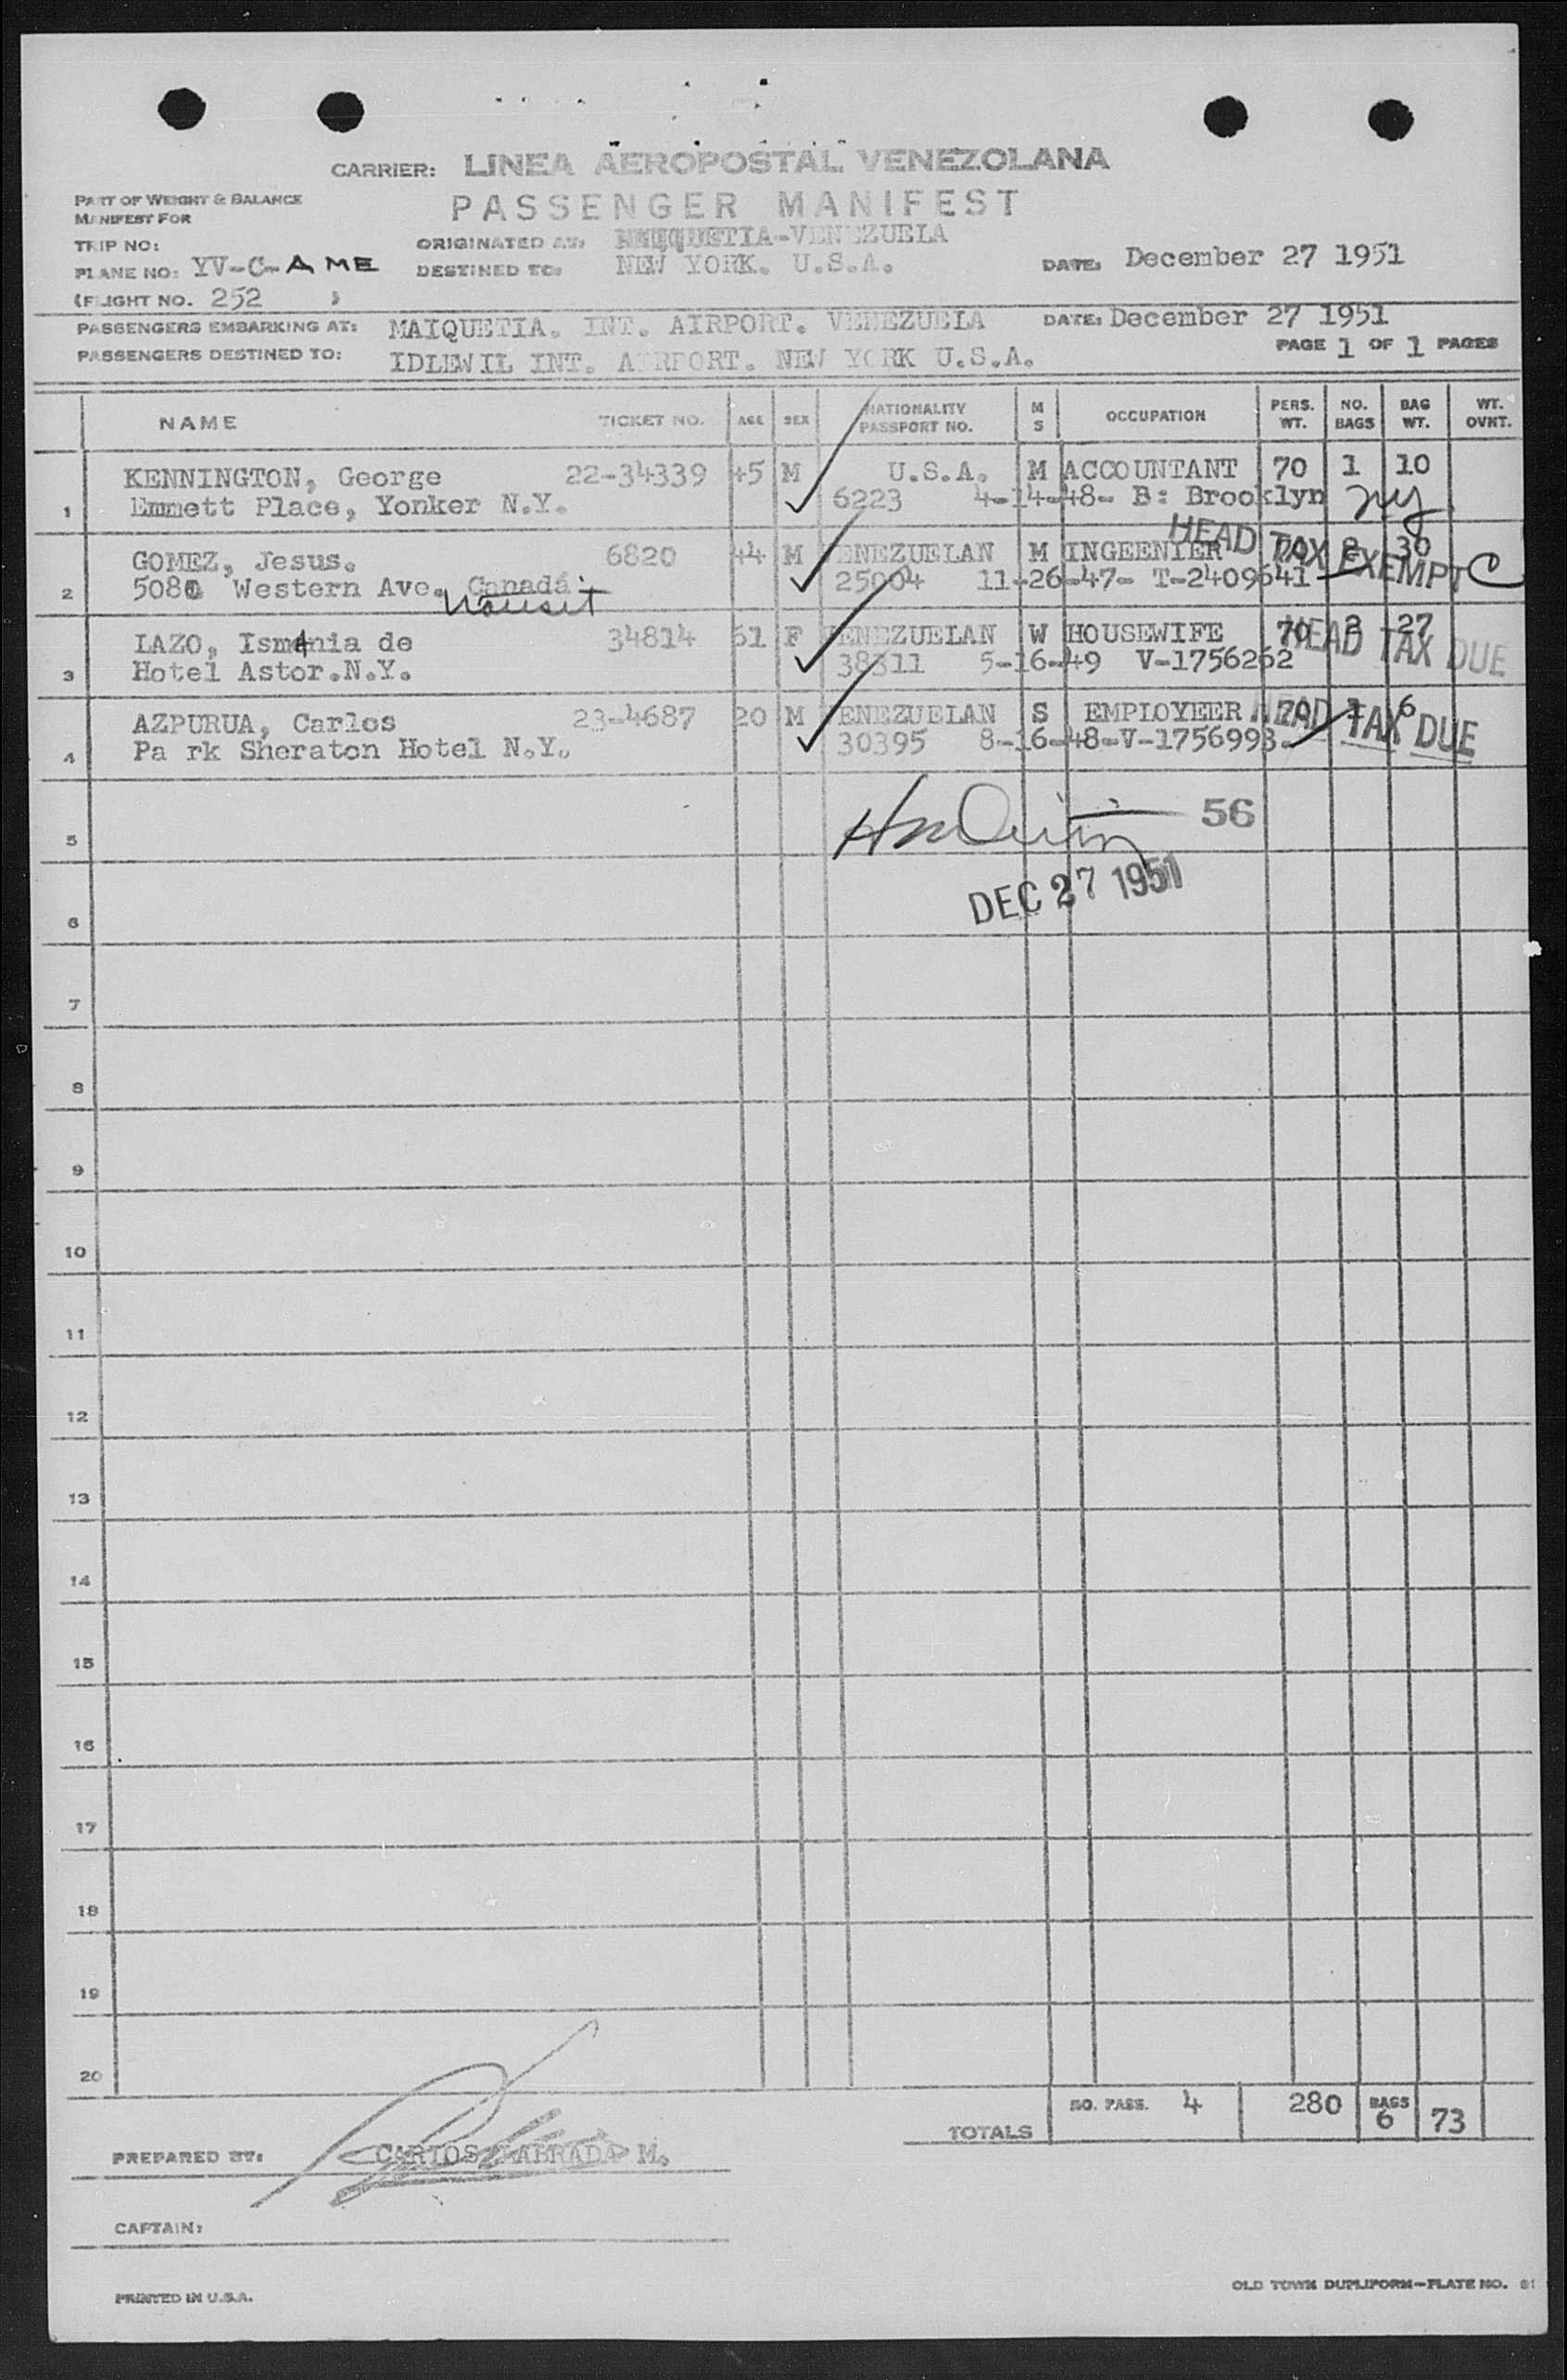 CARRIER: LINEA AEROPOSTAL VENEZOLANA
PASSENGER MANIFEST
PART OF WEIGHT & BALANCE
MANIFEST FOR
TRIP NO:
ORIGINATED AT: MAIQUETIA-VENEZUELA
PLANE NO: YV-C-AME
DESTINED TO: NEW YORK. U.S.A.
DATE: December 27 1951
(FLIGHT NO. 252 )
PASSENGERS EMBARKING AT: MAIQUETIA. INT. AIRPORT. VENEZUELA DATE: December 27 1951
PASSENGERS DESTINED TO: IDLEWIL INT. AIRPORT. NEW YORK U.S.A. PAGE 1 OF 1 PAGES
NAME TICKET NO. AGE SEX NATIONALITY PASSPORT NO. M S OCCUPATION PERS. WT. NO. BAGS BAG WT. WT. OVNT.
1 KENNINGTON, George 22-34339 45 M U.S.A. M ACCOUNTANT 70 1 10
Emmett Place, Yonker N.Y. 6223 4-14-48- B: Brooklyn NY
2 GOMEZ, Jesus. 6820 44 M VENEZUELAN M INGEENIER 70 2 30
HEAD TAX EXEMPT C
Western Ave. Canadá. 25004 11-26-47- T-2409641
transit
3 LAZO, Ismania de 34814 51 F VENEZUELAN W HOUSEWIFE 70 2 27
Hotel Astor.N.Y. 38311 5-16-49 V-1756262
HEAD TAX DUE
4 AZPURUA, Carlos 23-4687 20 M VENEZUELAN S EMPLOYEER 70 1 6
Pa rk Sheraton Hotel N.Y. 30395 8-16-48-V-1756993.
HEAD TAX DUE
56
5
DEC 27 1951
6
7
8
9
10
11
12
13
14
15
16
17
18
19
20
TOTALS NO. PASS. 4 280 BAGS 6 73
PREPARED BY: CARLOS LABRADA M.
CAPTAIN:
PRINTED IN U.S.A.
OLD TOWN DUPLIFORM-PLATE NO.